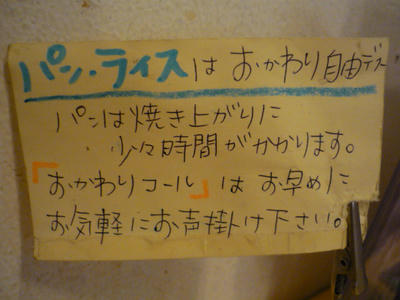 パン・ライスは おかわり自由デス
パンは焼き上がりに
少々時間がかかります。
「おかわりコール」は お早めに
お気軽にお声掛け下さい。